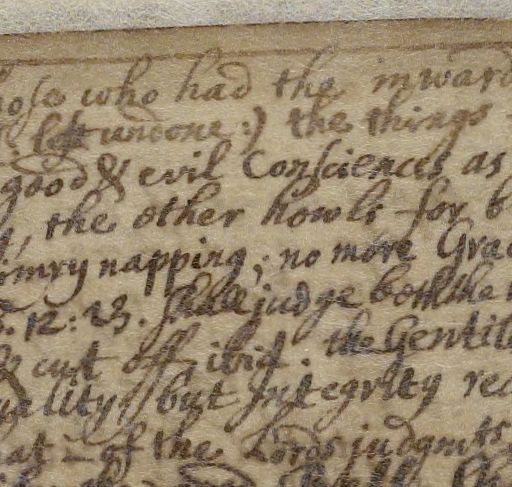 hose who had the inward
left undone:) the things
good & evil Consciences as
, the other howls for b
imry napping; no more Grac
. 12: 23. shall judge both the
& cut off, ibid. the Gentil
uality, but Integrity re
at - of the Lords judgmts